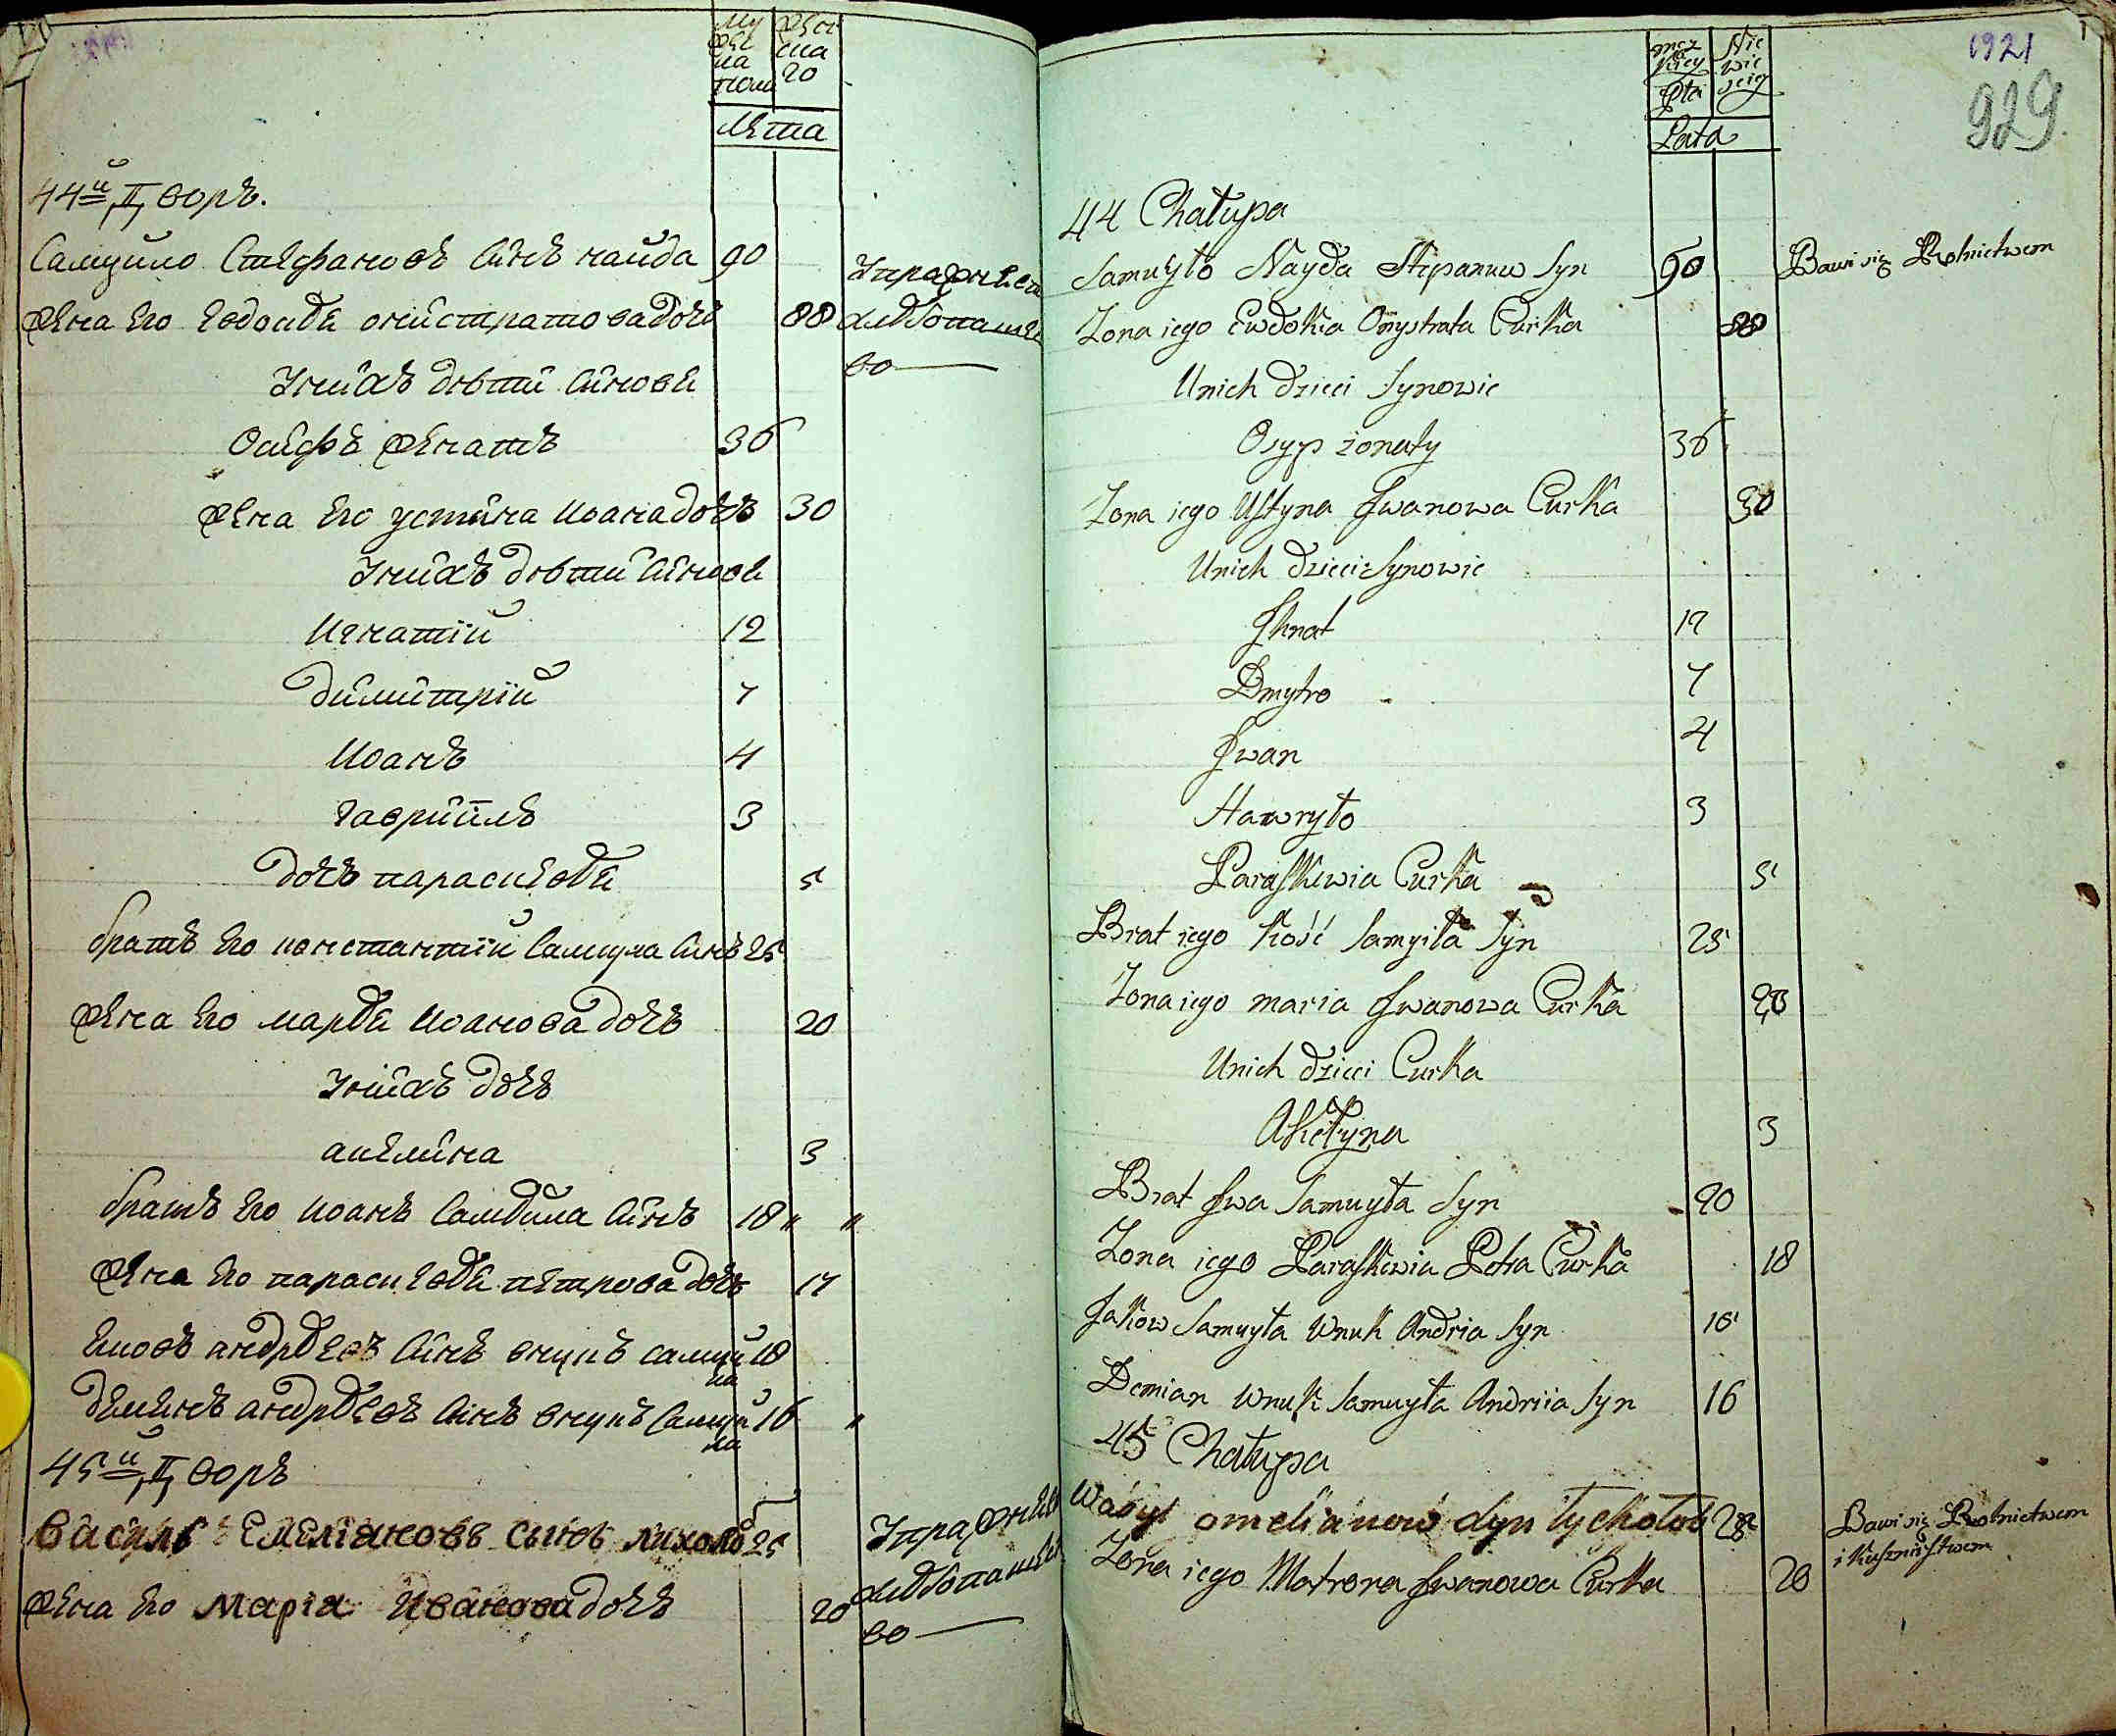 Му жес ка полу
Женс ка 20
Лета
44й Дворъ.
Самуило Стефановъ синъ найда 90
Жена Его Евдокіа онистратова дочь 88
Упражнен
хлебопашес
во
Унихъ дети синове
Осифъ женатъ 36
Жена Его устина Иоана дочь 30
Унихъ дети синове
Игнатій 12
Димитрій 7
Иоанъ 4
Гавріилъ 3
дочъ параскева 5
братъ Его константій Самуила синъ 25
Жена Его марія Иоанова дочъ 20
Унихъ дочъ
акелина 3
братъ Его Иоанъ Самуила синъ 18 " "
Жена Его параскева петрова дочъ 17
Яковъ андреевъ синъ внукъ самуи 18
ла
Деменъ андреевъ синъ внукъ Самуи 16 "
ла
45й Дворъ
Василь Емеліановъ сынъ лихолоб 25
Жена Его Маріа Иванова дочъ 20
Упражнен
хлебопашес
во
1921
929.
Lata
44 Chałupa
Samuyło Nayda Stepanuw Syn 90
Bawi się Rolnictwem
Zona iego Ewdokia Onystrata Curka 88
Unich dzieci Synowie
Osyp żonaty 36
Zona iego Ustyna Iwanowa Curka 30
Unich dzieci Synowie
Ihnat 12
Dmytro 7
Iwan 4
Hawryło 3
Paraskiewia Curka 5
Brat iego Kość Samyiła Syn 25
Zona iego maria Iwanowa Curka 20
Unich dzieci Curka
Akełyna 3
Brat Iwa Samuyła Syn 20
Zona iego Paraskiewia Petra Curka 18
Jakow Samuyła Wnuk Andria Syn 18
Demian Wnuk Samuyła Andriia Syn 16
45 Chałupa
Wasyl omelianow syn łychołob 28
Bawi się Rolnictwem
i Kusznirstwem
Zona iego Motrona Iwanowa Curka 20